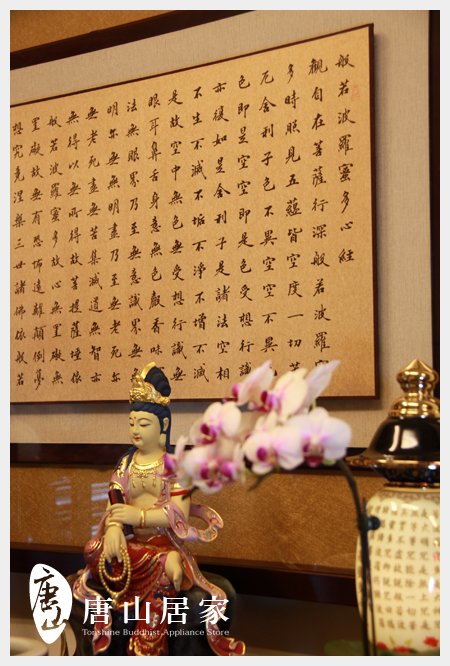 般若波羅蜜多心経
觀自在菩薩行深般若波羅蜜
多時照見五蘊皆空度一切苦
厄舍利子色不異空空不異
色即是空空即是色受想行識
亦復如是舍利子是諸法空相
不生不滅不垢不淨不增不減
是故空中無色無受想行識無
眼耳鼻舌身意無色聲香味
法無眼界乃至無意識界無無
明亦無無明盡乃至無老死亦
無老死盡無苦集滅道無智亦
無得以無所得故菩提薩埵依
般若波羅蜜多故心無罣礙無
罣礙故無有恐怖遠離顛倒夢
想究竟涅槃三世諸佛依般若
唐山
唐山居家
Tonshine Buddhist Appliance Store